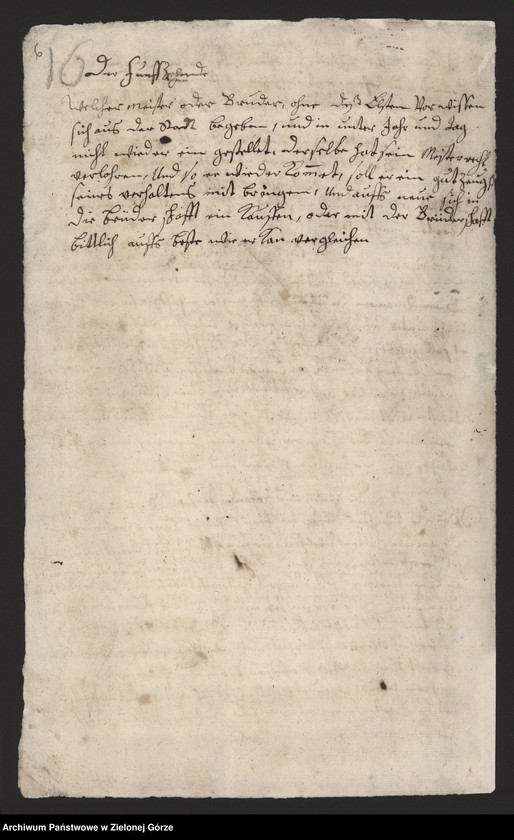 6
16
Der Funffzehende
Welcher meister oder Bruder, ohne deß Elsten Vorwissen
sich aus der Stadt begeben, und in unter Jahr und tag
nicht wieder ein gestellet, derselbe hat sein Meisterrecht
verlohren, Und so er wieder kommet, soll er ein gut zeugß
seines verhaltens mit bringen, Und auffs neue sich in
die brüderschafft ein kauffen, oder mit der Brüderschafft
bittlich auffs beste wie er kan vergleichen
Archiwum Państwowe w Zielonej Górze